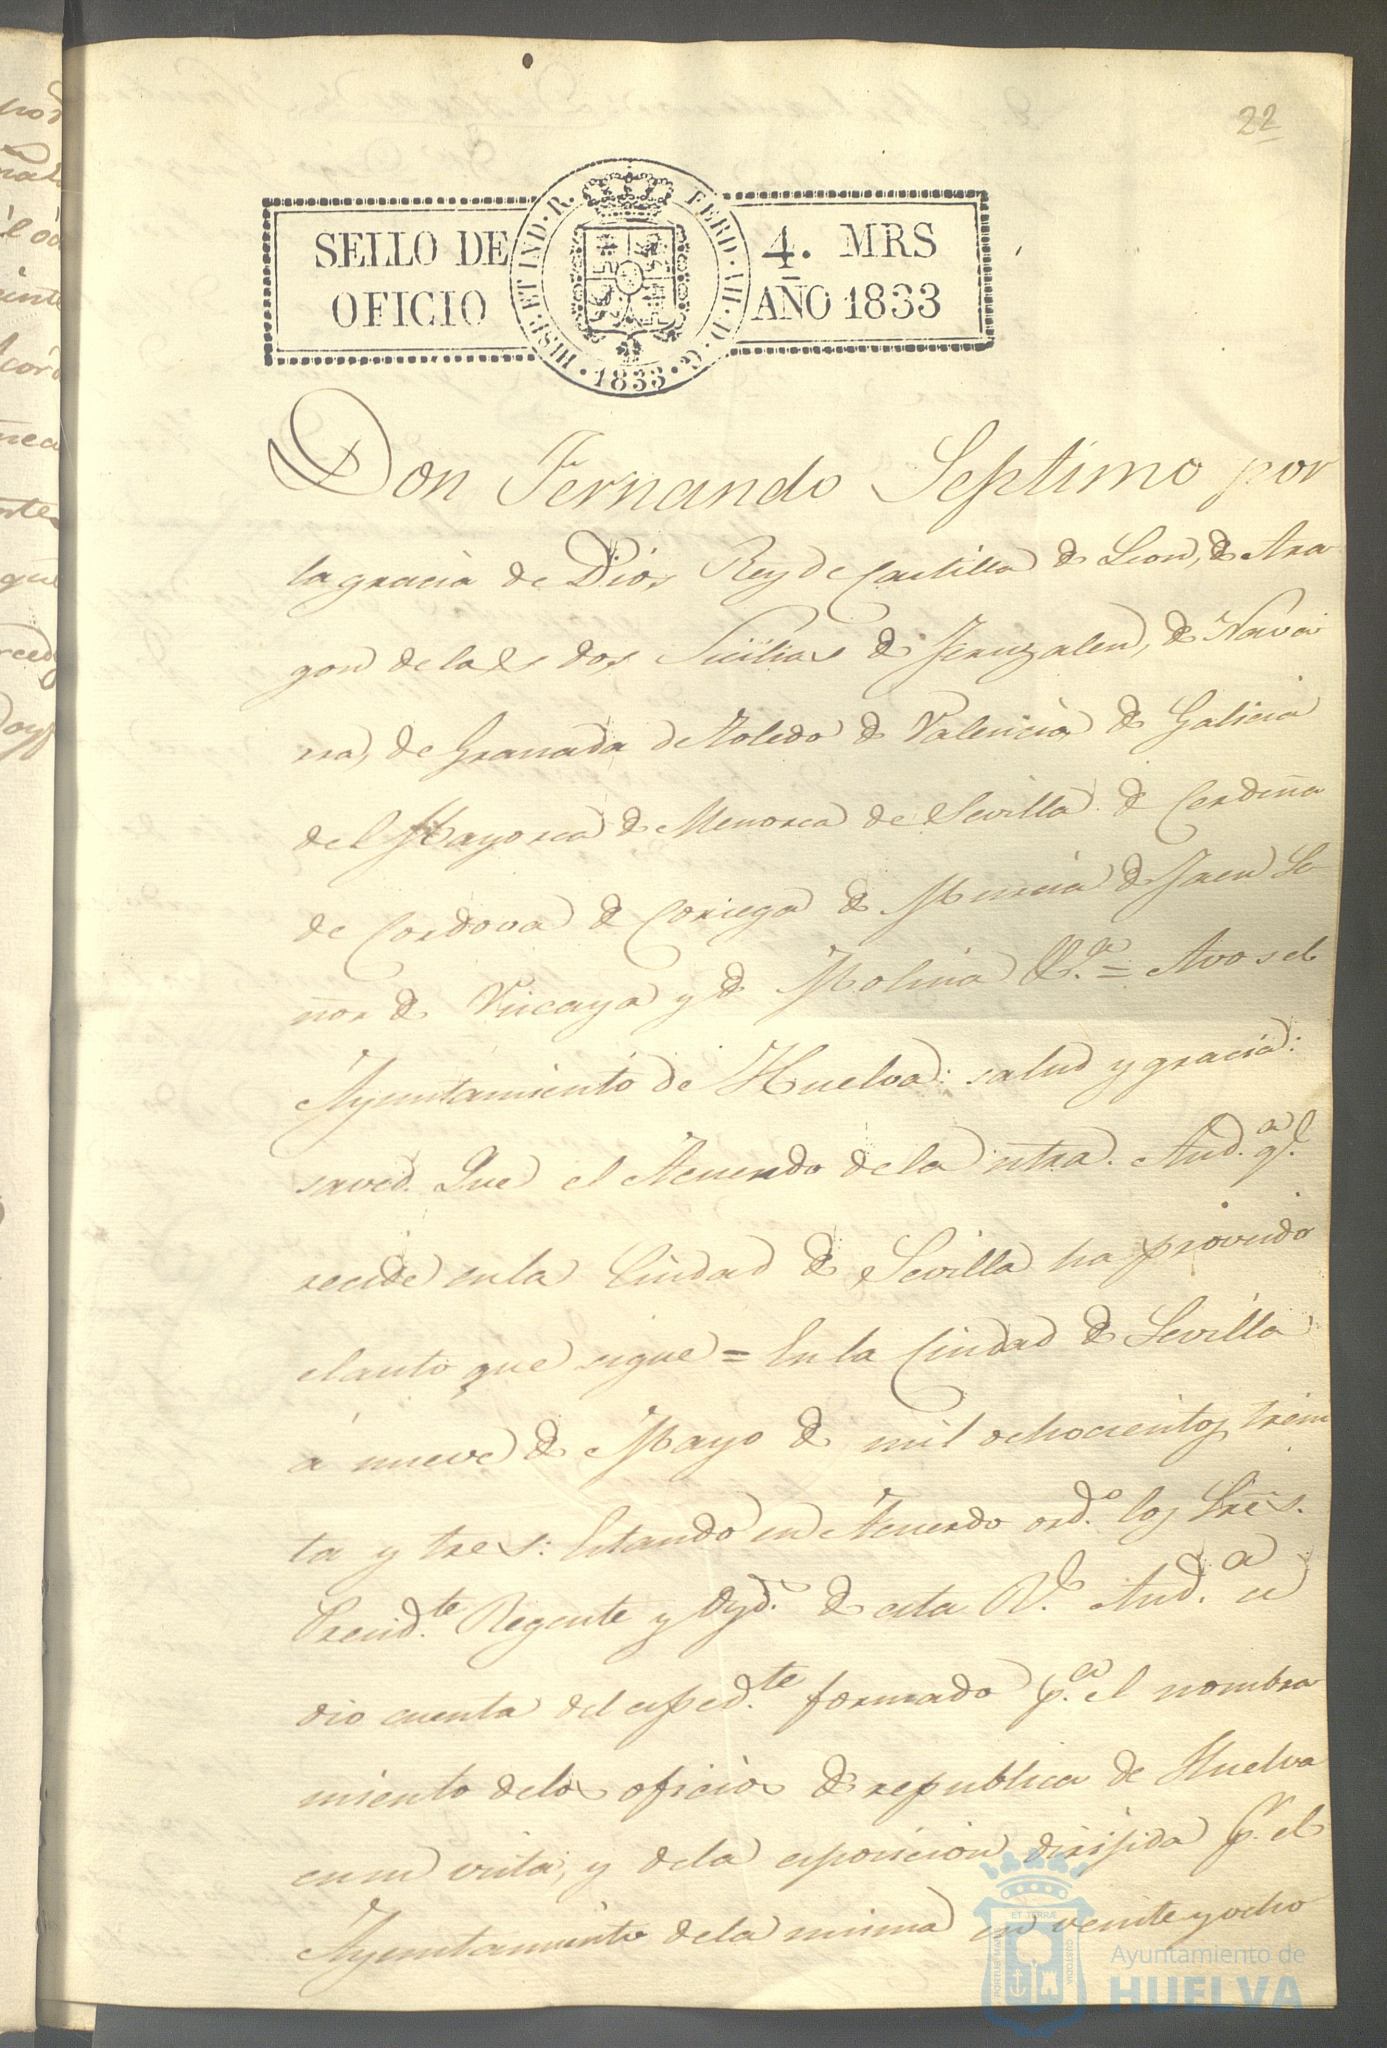 22
SELLO DE OFICIO
4. MRS
AÑO 1833
HISP. ET IND. R. FERD. VII. D. G. 1833
Don Fernando Septimo por
la gracia de Dios Rey de Castilla de Leon, de Ara
gon de las dos Sicilias de Jeruzalen, de Nava
rra, de Granada de Toledo de Valencia de Galicia
del Mayorca de Menorca de Sevilla de Cerdeña
de Cordova de Coriega de Murcia de Jaen Se
ñor de Viscaya y de Molina &.ª = A vos el
Ayuntamiento de Huelva: salud y gracia:
saved. Que el Acuerdo de la ntra. Aud.ª q.l
recide en la Ciudad de Sevilla ha proveido
el auto que sigue = En la Ciudad de Sevilla
á nueve de Mayo de mil ochocientos trein
ta y tres: Estando en Acuerdo ord.º los Sres.
Presid.te Regente y Oyd.s de esta R.l Aud.ª se
dio cuenta del esped.te formado p.ª el nombra
miento de los oficios de republica de Huelva
en su vista, y de la esposicion dirijida p.r el
Ayuntamiento de la misma en veinte y ocho
ET TERRÆ
CUSTODIA
Ayuntamiento de
HUELVA